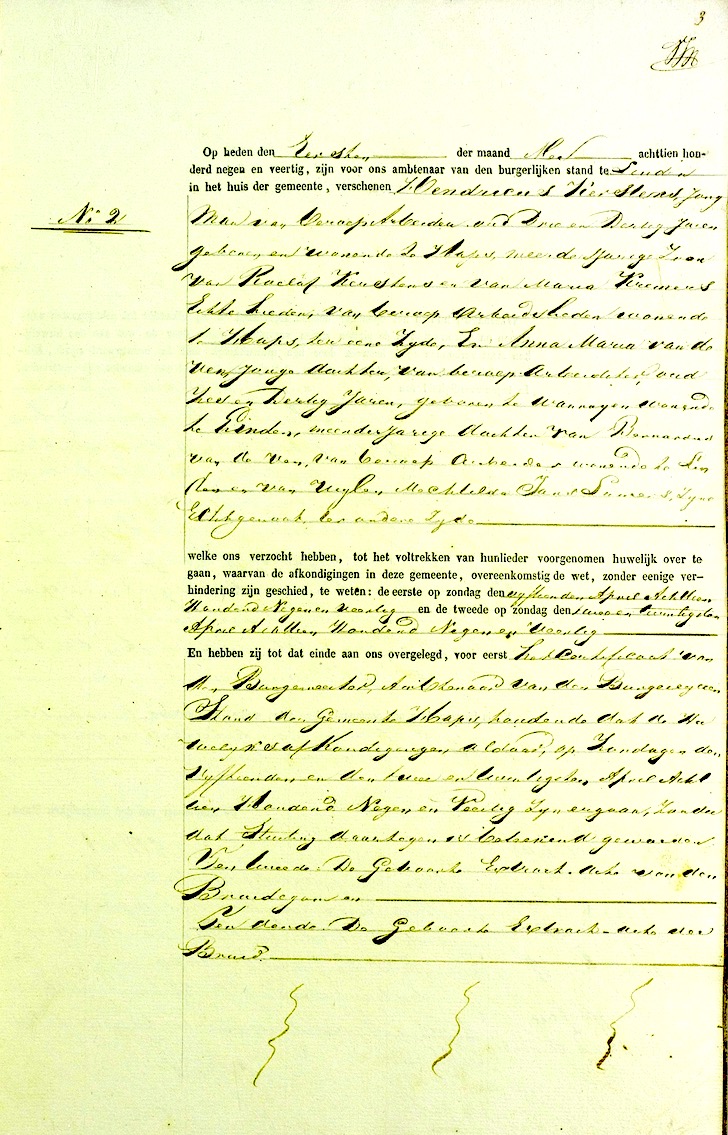 3
No 2
Op heden den Eersten der maand Mei achttien hon-
derd negen en veertig, zijn voor ons ambtenaar van den burgerlijken stand te Linden
in het huis der gemeente, verschenen Hendricus Kerstens, Jong
Man van beroep Arbeider oud Drie en Dertig Jaren
geboren en wonende te Haps, meerderjarige Zoon
van Roelof Kerstens en van Maria Kremers
Echtelieden, van beroep Arbeidslieden wonende
te Haps, ter eene Zyde, En Anna Maria van de
Ven, Jonge dochter, van beroep Arbeidster, oud
Zes en Dertig Jaren, geboren te Wanroyen wonende
te Linden, meerderjarige dochter van Bernardus
van de Ven, van beroep Arbeider wonende te Lin
den en van Mechtilda Jans Lamers, Zyne
Echtgenoot, ter andere Zyde
welke ons verzocht hebben, tot het voltrekken van hunlieder voorgenomen huwelijk over te
gaan, waarvan de afkondigingen in deze gemeente, overeenkomstig de wet, zonder eenige ver-
hindering zijn geschied, te weten: de eerste op zondag den vyftienden April Achttien
Honderd Negen en Veertig en de tweede op zondag den twee en twintigsten
April Achttien Honderd Negen en Veertig
En hebben zij tot dat einde aan ons overgelegd, voor eerst het Certificaat van
den Burgemeester, Ambtenaar van den Burgerlyken
Stand der Gemeente Haps, houdende dat de Hu
welyks afkondigingen aldaar, op Zondagen den
vyftienden en den twee en twintigsten April Acht
tien Honderd Negen en Veertig Zyn ergaan, Zonder
dat Stuiting daartegen is beteekend geworden
Ten tweede: De Geboorte Extract-Acte van den
Bruidegom en
Ten derde: De Geboorte Extract-acte der
Bruid.